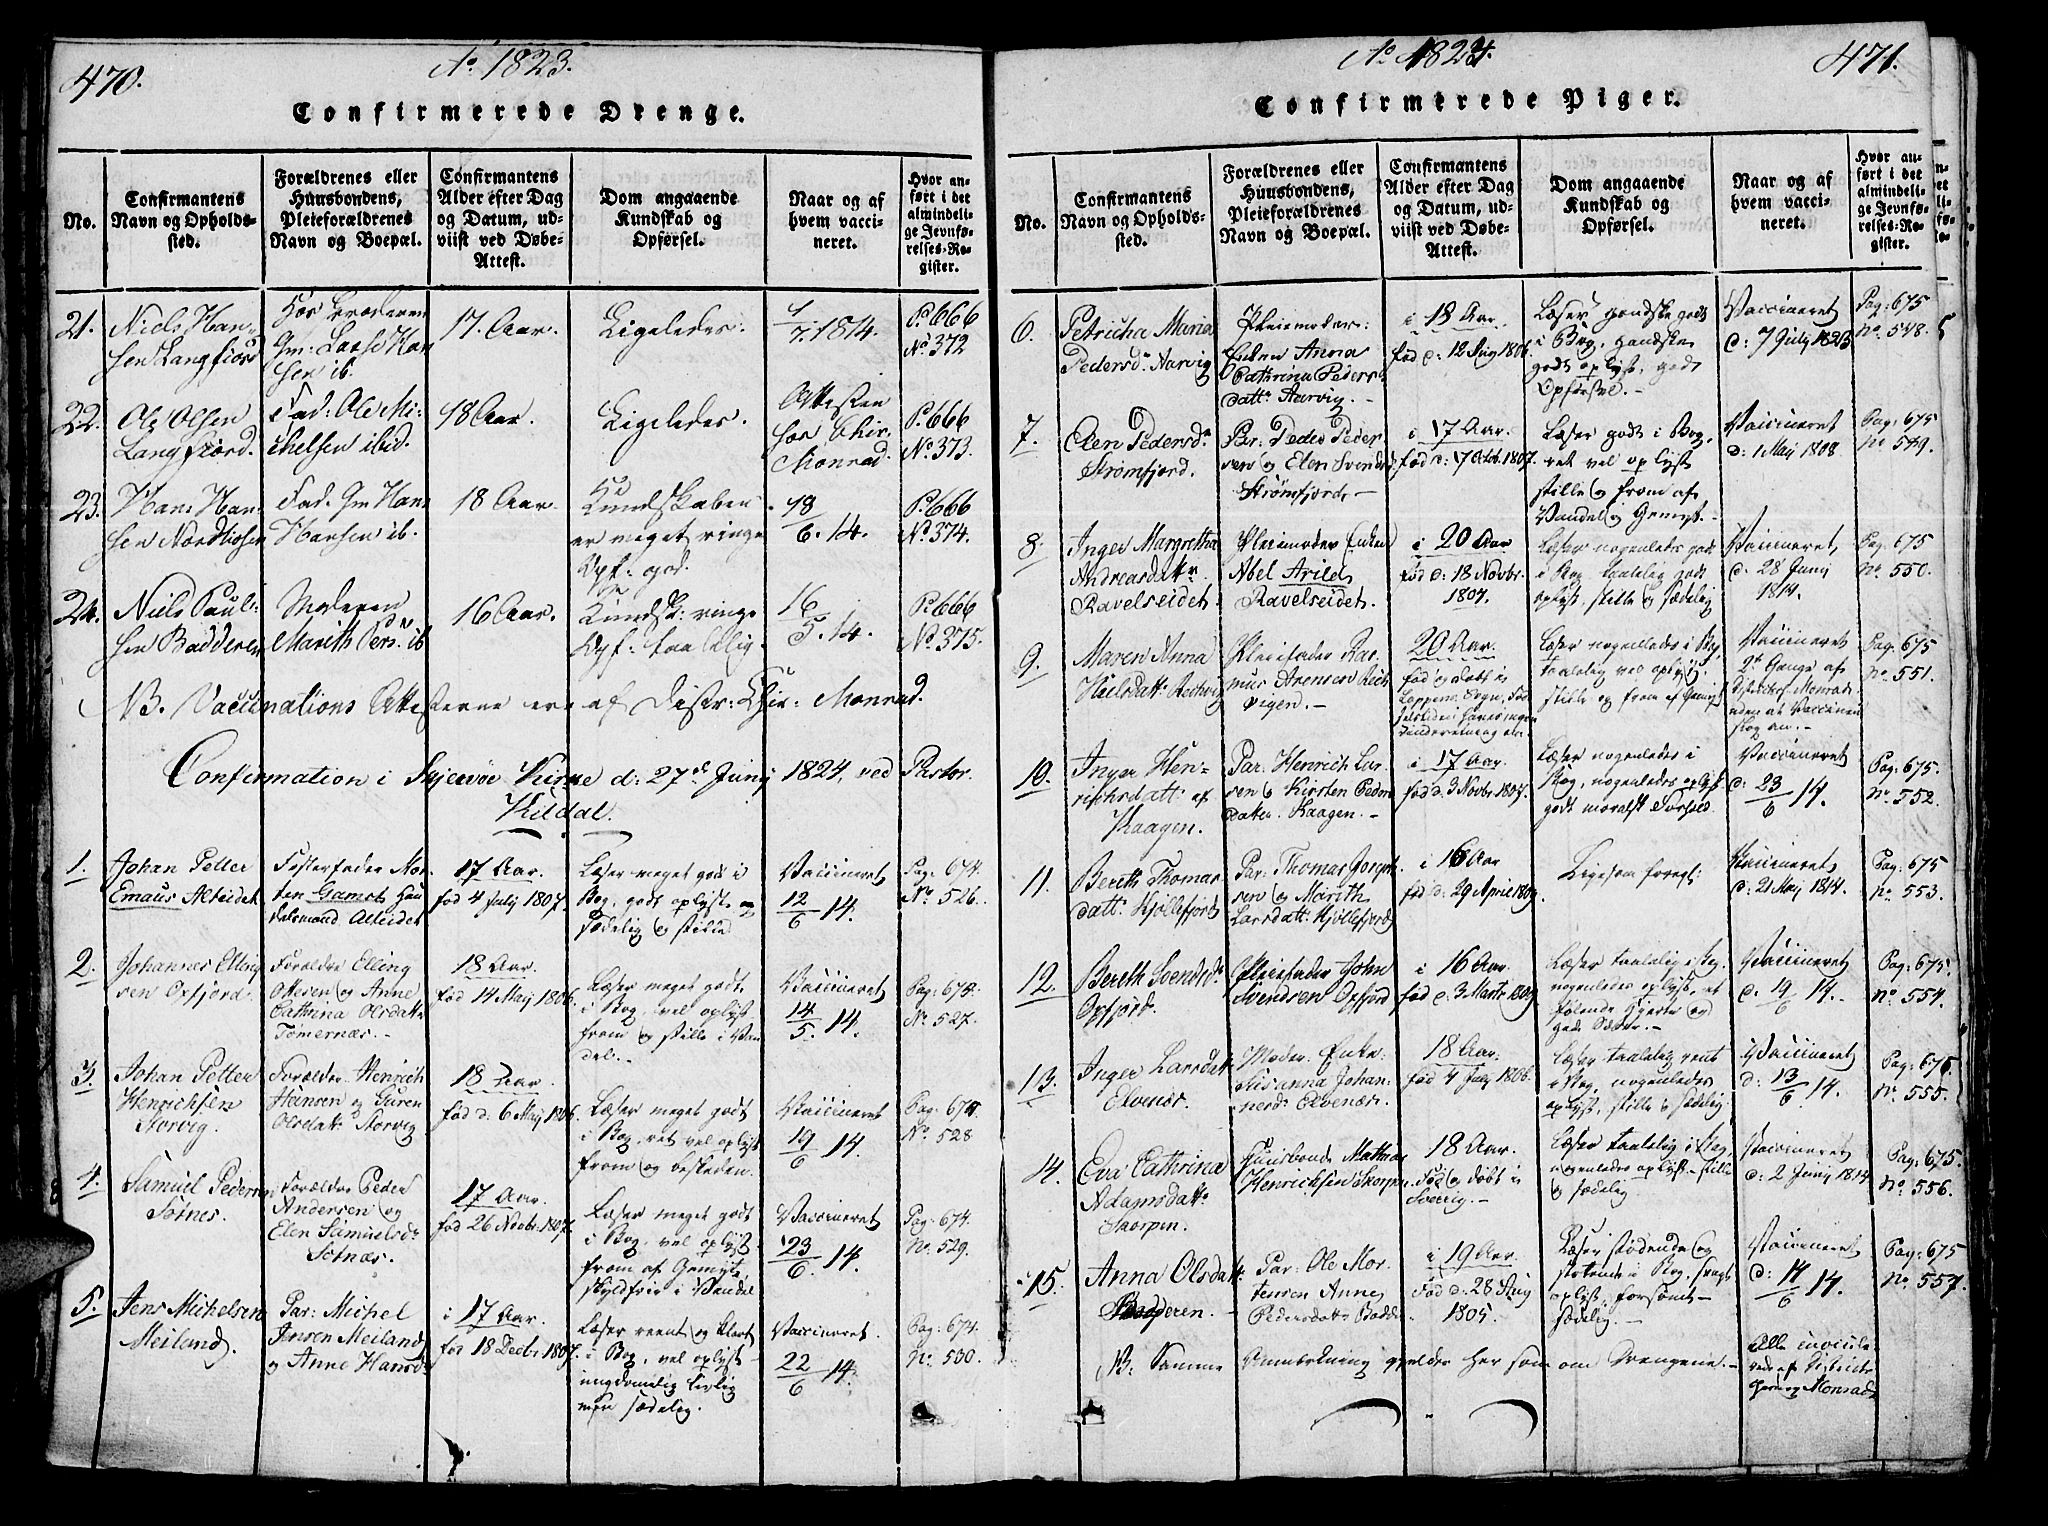 470.
Ao. 1823.
Confirmerede Drenge.
No.
Confirmantens
Navn og Opholds-
sted.
Forældrenes eller
Huusbondens,
Pleieforældrenes
Navn og Boepæl.
Confirmantens
Alder efter Dag
og Datum, ud-
viist ved Døbe-
Attest.
Dom angaaende
Kundskab og
Opførsel.
Naar og af
hvem vacci-
neret.
Hvor an-
ført i det
almindeli-
ge Jevnfø-
relses-Re-
gister.
21.
Niels Han-
sen Langfjord
Hos Broderen
Gm: Lasse Han
sen ib.
17. Aar.
Ligeledes.
1/7. 1814.
P: 666
No 372
22.
Ole Olsen
Langfjord.
Fad: Ole Mi-
chelsen ibid.
18 Aar.
Ligeledes.
Attesten
hos Chir.
Monrad.
P: 666
No. 373.
23.
Hans Han-
sen Nordkiosen
Fad. Gm Hans
Hansen ib.
18 Aar.
Kundskaben
er meget ringe
Opf: god.
18/6. 14.
P: 666
No. 374.
24.
Niels Paul-
sen Badderen
Moderen
Marith Pers. ib.
16 Aar.
Kundsk: ringe
Opf: taalelig.
16/5. 14.
P: 666
No. 375.
NB. Vaccinations Attesterne ere af Distr: Chir: Monrad.
Confirmation i Skjervøe Kirke d: 27de Junij 1824, ved Pastor
Kildal.
1.
Johan Petter
Emaus Alteidet
Fosterfader Mor-
ten Gamst Han
delsmand Alteidet
17 Aar.
fød 4 July 1807.
Læser meget godt i
Bog, godt oplyst og
sædelig og stille
Vaccineret
12/6 14.
Pag: 674.
No. 526.
2.
Johannes Elling
sen Oxfjord.
Forældre Elling
Ottesen og Anne
Cathrina Olsdatt:
Tømernæs.-
18 Aar.
fød 14 Maij 1806.
Læser meget godt
i Bog, vel oplyst
from og stille i Van
del.-
Vaccineret
14/5. 14.
Pag: 674.
No. 527.
3.
Johan Petter
Henrichsen
Storvig.
Forældre Henrich
Hansen og Guren
Olsdatt: Storvig
18 Aar.
fød d. 6 Maij 1806.
Læser meget godt
i Bog, ret vel oplyst
from og beskeden.
Vaccineret
19/6 14.
Pag: 674.
No. 528
4.
Samuel Pedersen
Sotnes.
Forældre Peder
Andersen og
Elen Samuelsd:
Sotnæs.
17 Aar.
fød 26 Novbr. 1807.
Læser meget godt
i Bog, vel oplyst
from af Gemyt
skyldfrie i Vandel
Vaccineret
23/6. 14.
Pag: 674.
No. 529.
5.
Jens Michelsen
Meiland.
Par: Michel
Jensen Meiland
og Anne Hansd:
i 17 Aar.
fød 18 Decbr. 1807.
Læser reent og klart
i Bog, vel oplyst
ungdomelig livlig
men sædelig.
Vaccineret.
22/6 14.
Pag: 674.
No. 530.
Ao 1824.
471.
Confirmerede Piger.
No.
Confirmantens
Navn og Opholds-
sted.
Forældrenes eller
Huusbondens,
Pleieforældrenes
Navn og Boepæl.
Confirmantens
Alder efter Dag
og Datum, ud-
viist ved Døbe-
Attest.
Dom angaaende
Kundskab og
Opførsel.
Naar og af
hvem vacci-
neret.
Hvor an-
ført i det
almindeli-
ge Jevnfø-
relses-Re-
gister.
6.
Petricha Maria
Pedersd: Aarvig
Pleiemoder:
Enken Anna
Cathrina Peders
datt: Aarvig.-
i 18 Aar.
fød d: 12 Aug 1806.
Læser gandske godt
i Bog, gandske
godt oplyst, godt
Opførsel.-
Vaccineret
d: 7 July 1823
Pag: 675
No. 548.
7.
Elen Pedersd:
Strømfjord.
Par: Peder Peder
sen og Elen Svendsd
Strømfjord.-
i 17 Aar.
fød d: 7 Octob. 1807.
Læser godt i Bog,
ret vel oplyst
stille og from af
Vandel og Gemyt.-
Vaccineret
d: 1 Maij 1808
Pag: 675
No 549.
8.
Inger Margretha
Andreasdatter
Ravelseidet.
Pleiemoder Enken
Abel Arild
Ravelseidet.
i 20 Aar
fød d: 18 Novbr.
1804.
Læser nogenledes godt
i Bog taalelig godt
oplyst, stille og sædelig
Vaccineret,
d. 28 Junij
1814.
Pag: 675
No. 550.
9.
Maren Anna
Nielsdatt: Rechvig
Pleiefader Ras-
mus Arensen Rech
vigen.-
20 Aar.
fød og døbt i
Loppens Sogn,
Læser nogenledes i Bog,
taalelig vel oplyst,
stille og from af Gemyt
Vaccineret
2de Gange af
Districtsch. Monrad
uden at Vaccinen
slog an.-
Pag. 675
No. 551.
10.
Inger Hen-
richsdatt: af
Kaagen.
Par. Henrich Lar
sen og Kirsten Peders
datter. Kaagen.-
i 17 Aar.
fød d. 3 Novbr. 1807.
Læser nogenledes i
Bog, nogenledes oplyst
godt moralsk Forhold.
Vaccineret
d: 23/6 14.
Pag: 675.
No. 552.
11.
Bereth Thomas
datt: Kjøllefjord
Par: Thomas Joseph
sen og Marith
Larsdatt: Kjøllefjord
i 16 Aar
fød d: 29 April 1809.
Ligesom forrige:
Vaccineret
d: 21 Maij 1814.
Pag: 675
No. 553.
12.
Bereth Svendsd:
Oxfjord.
Pleiefader John
Svendsen Oxfjord
i 16 Aar.
fød d: 3 Marts 1809
Læser taalelig i Bog,
nogenledes oplyst, et
følende Hjerte og
gode Sæder.-
Vaccineret
d. 19/6 14.-
Pag: 675.
No. 554.
13.
Inger Larsdatt:
Elvenæs.
Moder: Enke
Susanna Johan-
nesd: Elvenæs.
18 Aar.
fød 4 July 1806.
Læser taalelig reent
i Bog, nogenledes
oplyst, stille og sædelig
Vaccineret
d: 13/6 14.
Pag: 675.
No. 555.
14.
Eva Cathrina
Adamsdatt:
Skorpen.
Huusbonde Mathias
Henrichsen Skorpen.
18 Aar.
Fød og døbt i
Sverrig.-
Læser taalelig i Bog,
nogenledes oplyst - stille
og sædelig
Vaccineret
d: 2 Junij 1814
Pag: 675.
No 556.
15.
Anna Olsdatt:
Badderen.-
Par: Ole Mor-
tensen Anne
Pedersdatt: Badde
i 19 Aar.
Fød d: 28 Aug
1805.
Læser stødende og
i Bog, svagt
oplyst, forsonet-
sædelig.
Vaccineret
d: 14/6 14.
Pag: 675
No. 557.
NB: Samme Anmærkning gjelder her som om Drengene.-
Alle inocule-
rede af Districts
Monrad